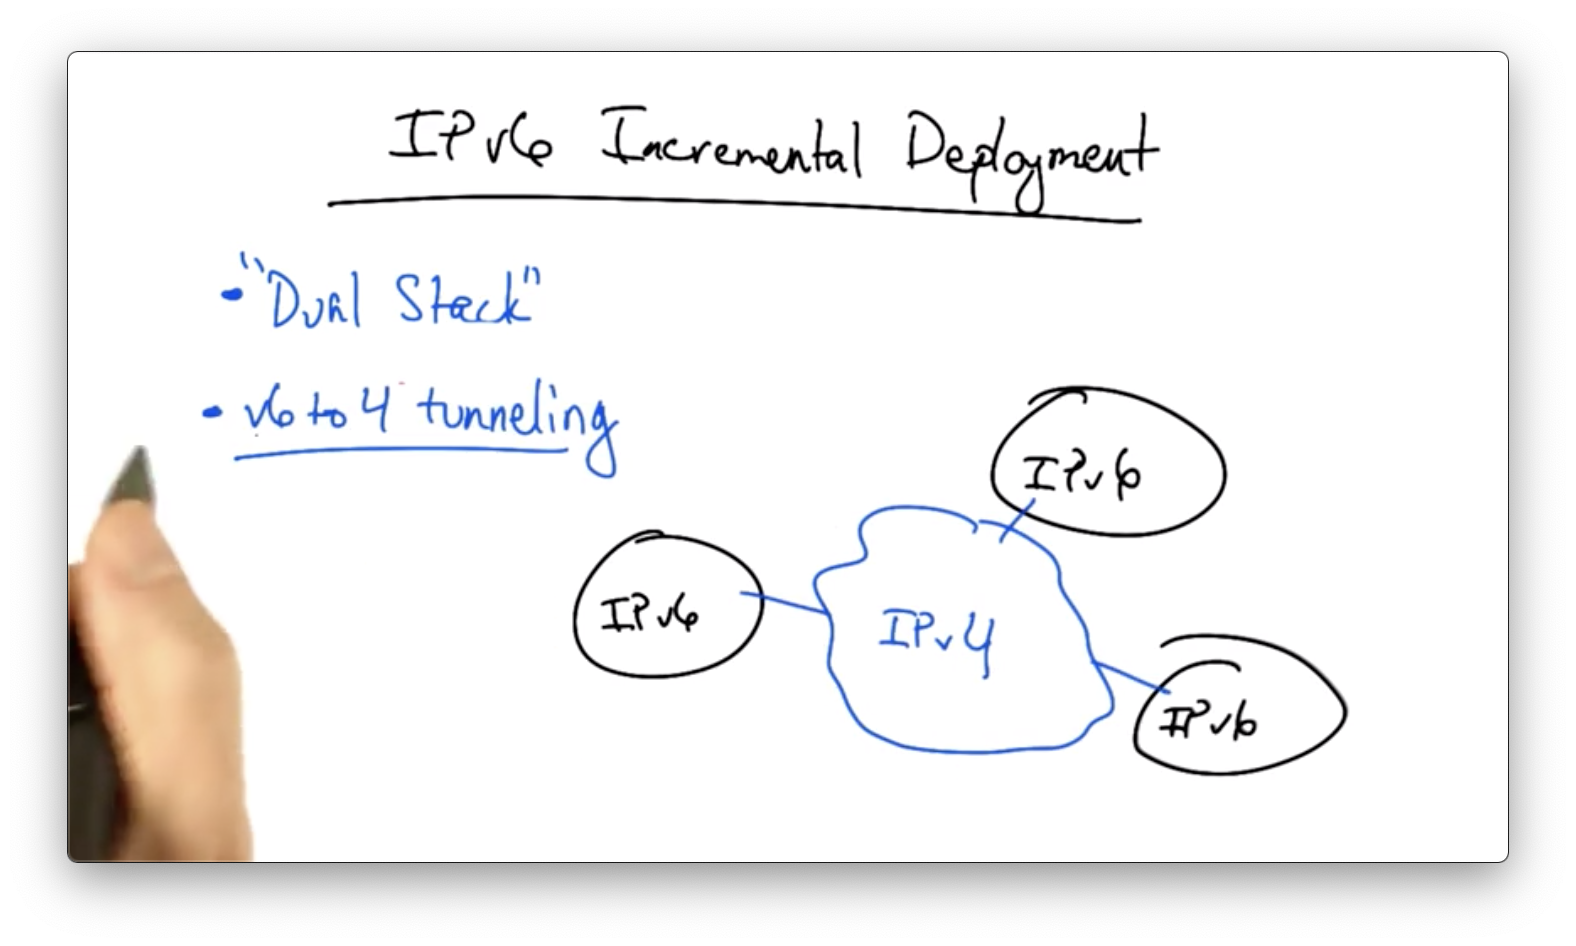 IPv6 Incremental Deployment
• "Dual Stack"
• v6 to 4 tunneling
IPv6
IPv6
IPv4
IPv6